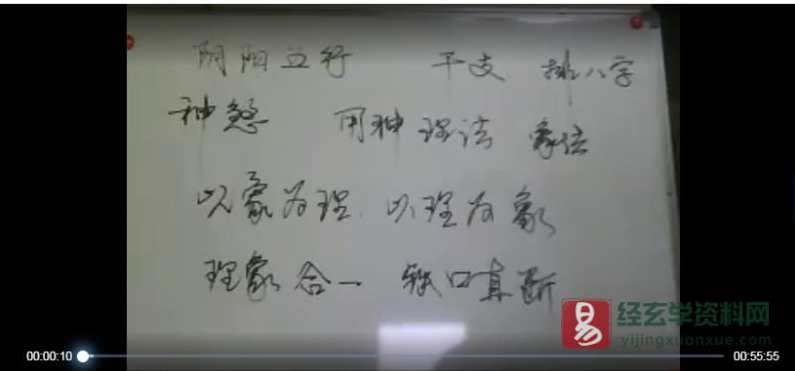 阴阳五行 干支 排八字
神煞 用神 理法 象法
以象为理、以理为象
理象合一 铁口直断
易 经玄学资料网
yijingxuanxue.com
00:00:10 00:55:55